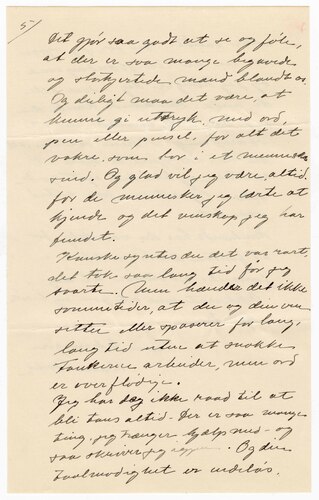 5/
Det gjør saa godt at se og føle,
at der er saa mange begavede
og storhjertede mænd blandt os.
Og deiligt maa det være, at
kunne gi uttryk med ord,
pen eller pensel, for alt det
vakre, som bor i et menneske
sind. Og glad vil jeg være altid
for de mennesker jeg lærte at
kjende og det venskap jeg har
fundet.
Kanske syntes du det var rart,
det tok saa lang tid før jeg
svarte. Men hænder det ikke
sommetider, at du og din ven
sitter eller spaserer for lang,
lang tid uten at snakke
Tankerne arbeider, men ord
er overflødige.
Jeg har dog ikke raad til at
bli taus altid. Der er saa mange
ting, jeg trænger hjælp med - og
saa skriver jeg igjen. Og din
Taalmodighet er endeløs.